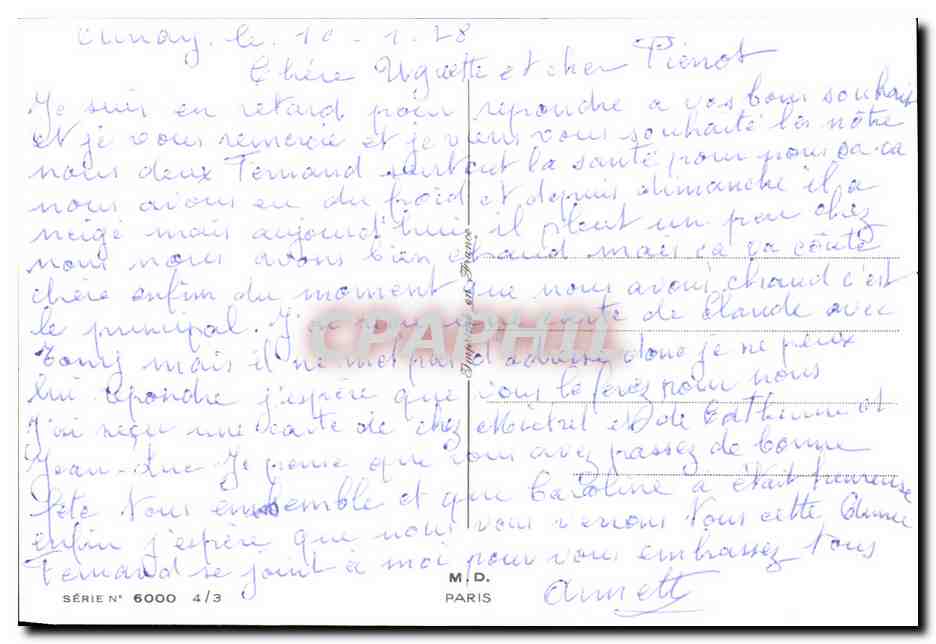 le 10-1-78
Chère Uguette et cher Pierrot
Je suis en retard pour repondre a vos bons souhait
et je vous remercie et je viens vous souhaité les nôtre
nous deux Fernand surtout la santé pour nous ça va
nous avons eu du froid et depuis dimanche il a
neigé mais aujourd'hui il pleut un peu chez
nous nous avons bien chaud mais ça va côuté
chère enfin du moment que nous avons chaud c'est
le principal. J'ai reçu une carte de Claude avec
Tony mais il ne met pas d'adresse donc je ne peux
lui repondre j'espère que vous le ferez pour nous
J'ai reçu une carte de chez Michel et de Catherine et
Jean-Luc Je pense que vous avez passez de bonne
fête tous ensemble et que Caroline a était heureuse
enfin j'espère que nous vous verrons tous cette Année
Fernand se joint à moi pour vous embrassez tous
Annett
CPAPHIL
Imprimé en France
M.D.
PARIS
SÉRIE N° 6000 4/3